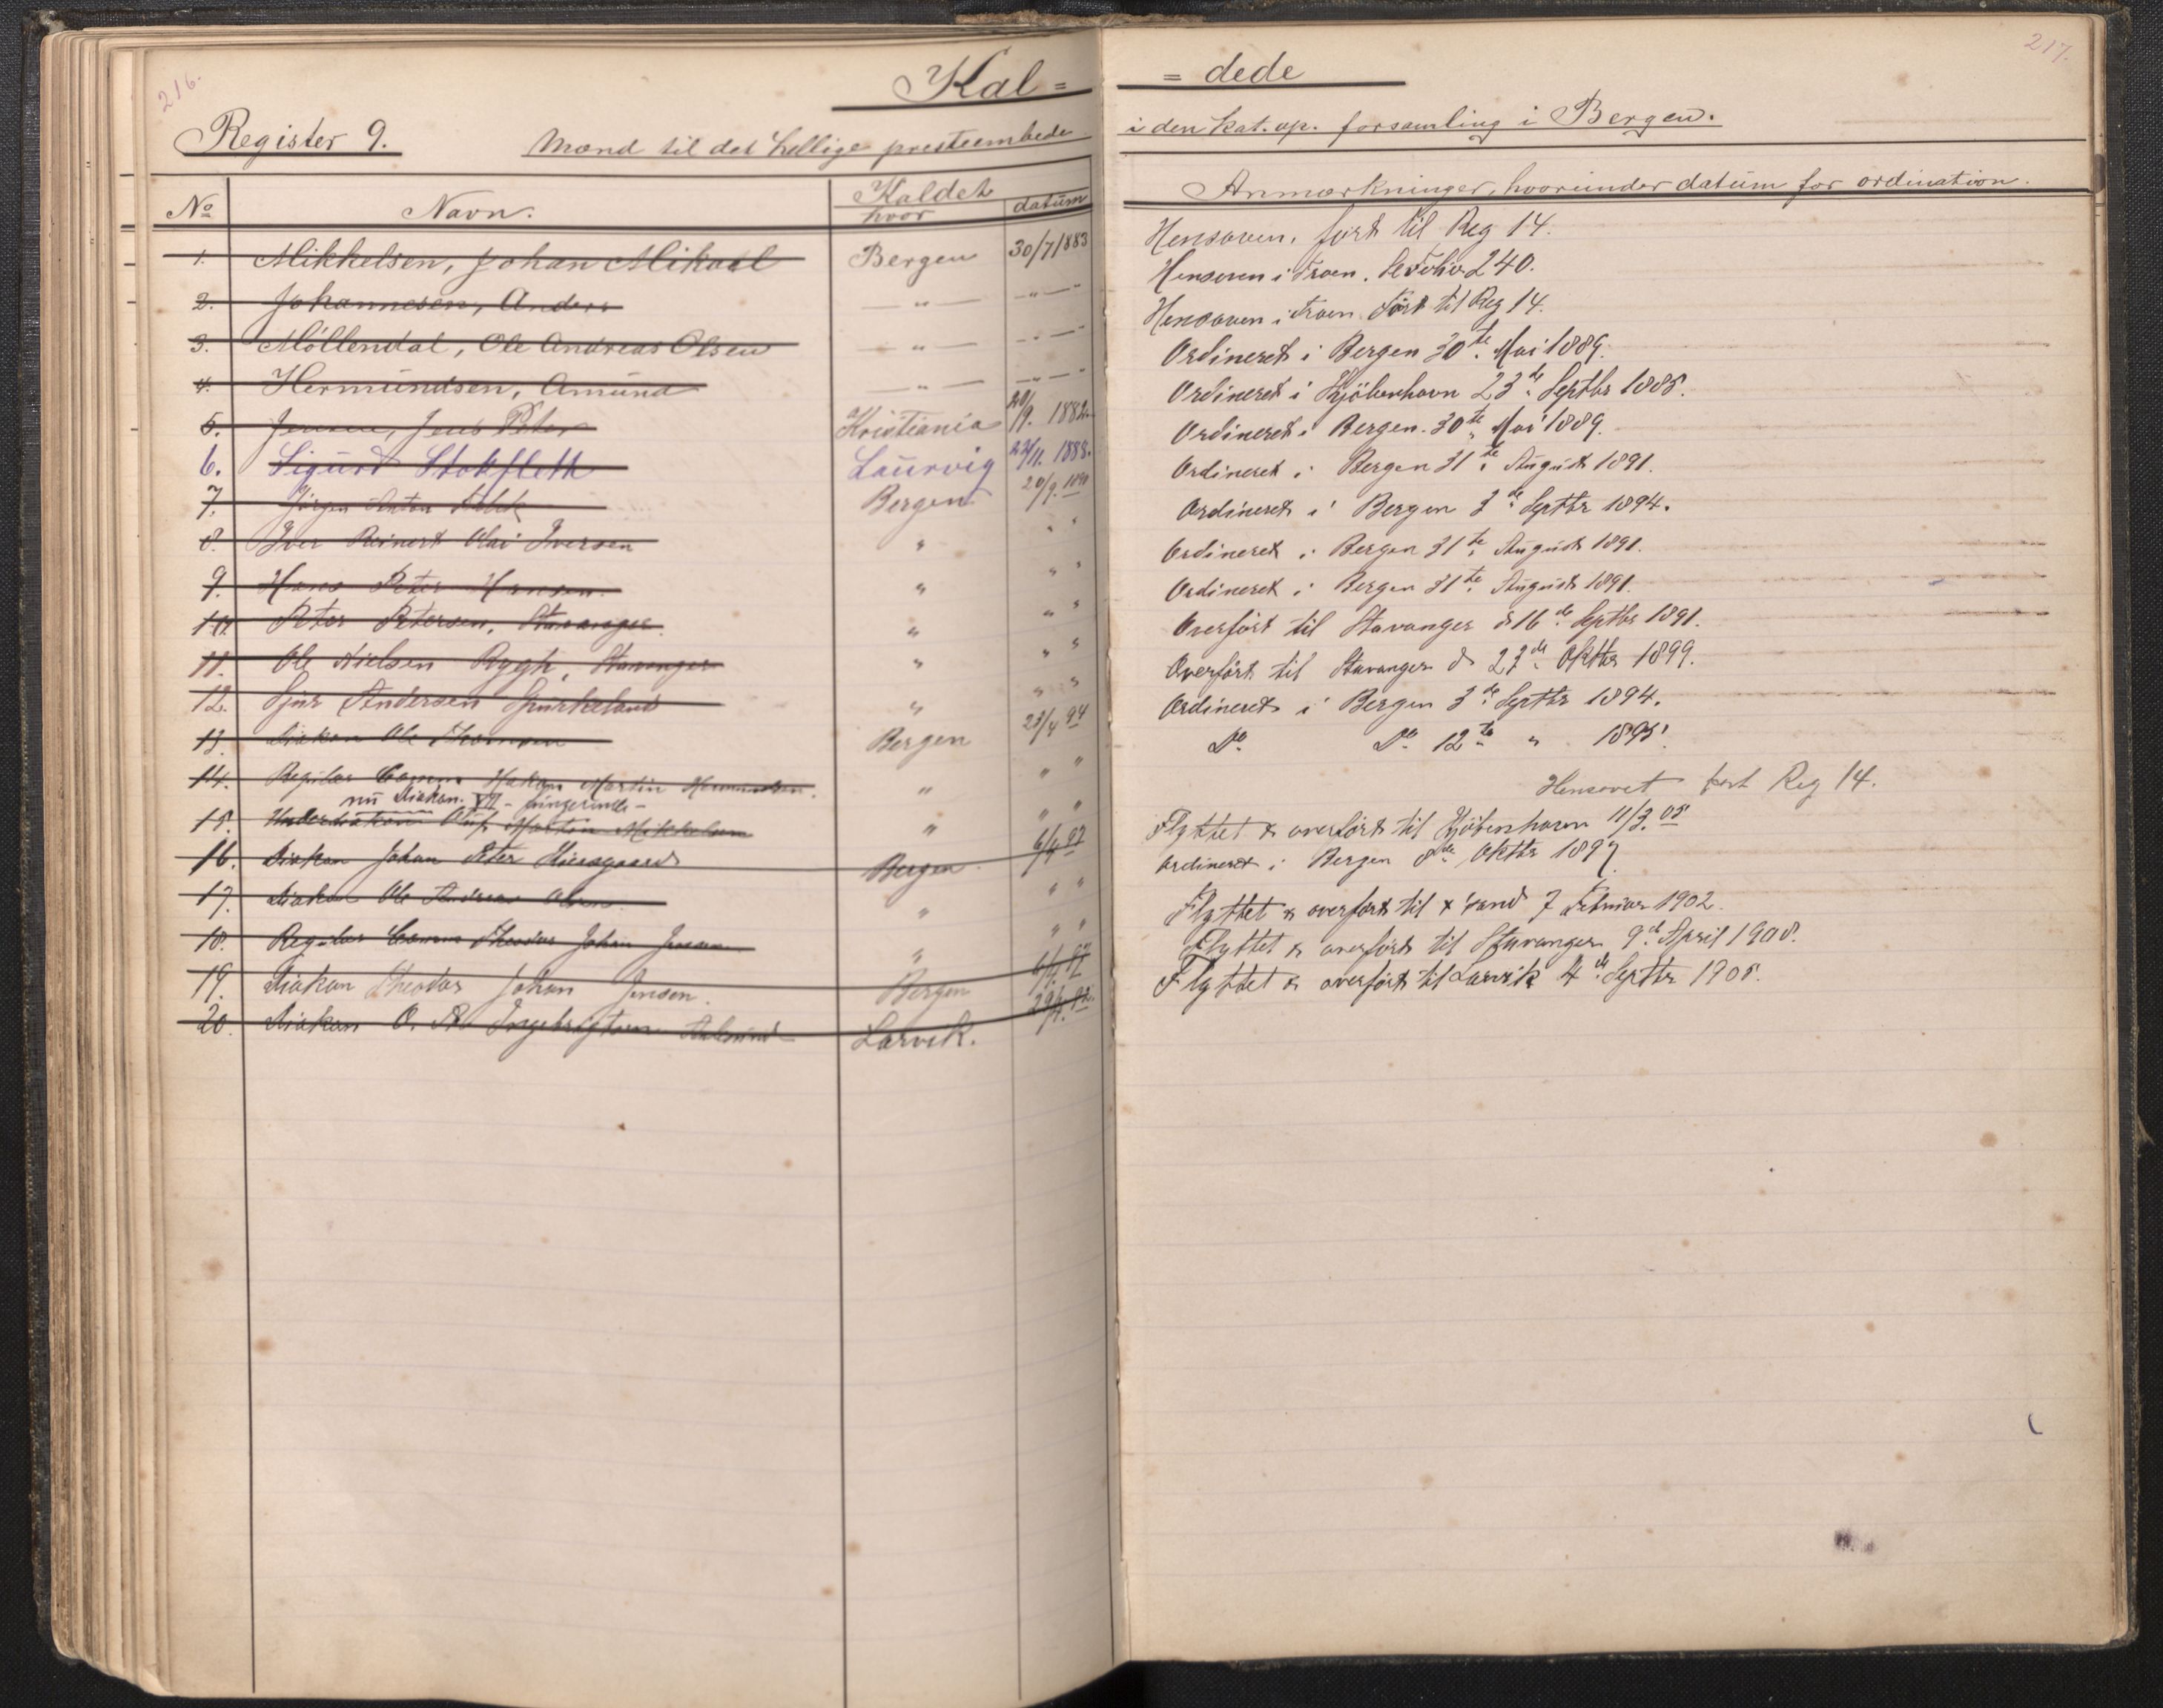 216.
Kal=
Register 9. Mænd til det hellige presteembede
No Navn. Kaldet
hvor datum
1. Mikkelsen, Johan Mikael Bergen 30/7 1883
2. Johannesen, Anders " "
3. Möllendal, Ole Andreas Olsen " "
4. Hermundsen, Amund " "
5. Jensen, Jens Peter Kristiania 20/9. 1882.
6. Sigurd Stokfleth Laurvig 22/11. 1888.
7. Jörgen Anton Bergen 20/9. 1890
8. Iver Reinert Olai Iversen " " "
9. Hans Peter Hansen. " " "
10. Peter Petersen, Stavanger. " " "
11. Ole Nielsen Rygh, Stavanger " " "
12. Sjur Andersen " " "
13. Diakon Ole Thomsen Bergen 23/4 94
14. Regulær Comm. Hakon Martin Hermundsen. " " "
nu Diakon.
15. Underdiakon Oluf Martin Mikkelsen " " "
16. Diakon Johan Peter Bergen 6/4 97
17. Diakon Ole Andreas Olsen " " "
18. Regulær Comm Theodor Johan Jensen " " "
19. Diakon Theodor Johan Jensen. Bergen
20. Diakon O. Ingebrigtsen Aalesund Larvik.
217.
= dede
i den kat. ap. forsamling i Bergen.
Anmærkninger, hvorunder datum for ordination.
Hensoven, fört til Reg 14.
Hensoven i Troen. Se Folio 240.
Hensoven i Troen. Fört til Reg 14.
Ordineret i Bergen 30te Mai 1889.
Ordineret i Kjöbenhavn 23de Septbr 1885.
Ordineret i Bergen. 30te Mai 1889.
Ordineret i Bergen 31te August 1891.
Ordineret i Bergen 3de Septbr 1894.
Ordineret i Bergen 31te August 1891.
Ordineret i Bergen 31te August 1891.
Overfört til Stavanger d 16de Septbr 1891.
Overfört til Stavanger d 23de Oktbr 1899.
Ordineret i Bergen 3de Septbr 1894.
Do Do 12te " 1895.
Hensovet fört Reg 14.
Flyttet & overfört til Kjöbenhavn 11/3. 05
Ordineret i Bergen 8de Oktbr 1897.
Flyttet & overfört til x sand 7 Februar 1902.
Flyttet & overfört til Stavanger 9de April 1908.
Flyttet & overfört til Larvik 4de Septbr 1905.